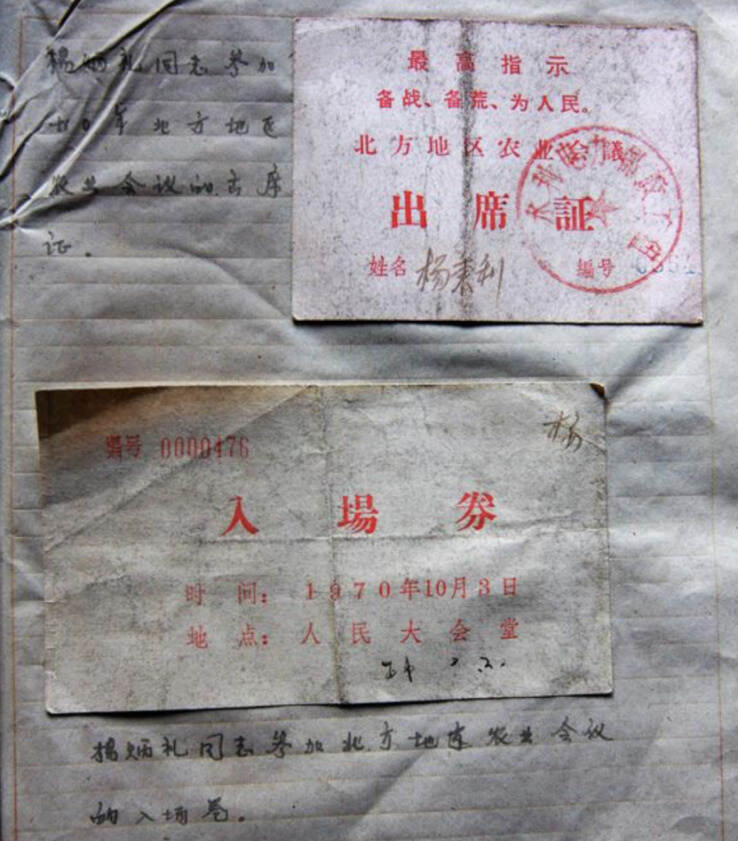 杨炳礼同志参加
七〇年北方地区
农业会议的出席
证。
最高指示
备战、备荒、为人民。
北方地区农业会議
出席証
姓名 杨秉利 編号
编号 0000476
杨
入場券
时间：1970年10月3日
地点：人民大会堂
杨炳礼同志参加北方地区农业会议
的入场卷。